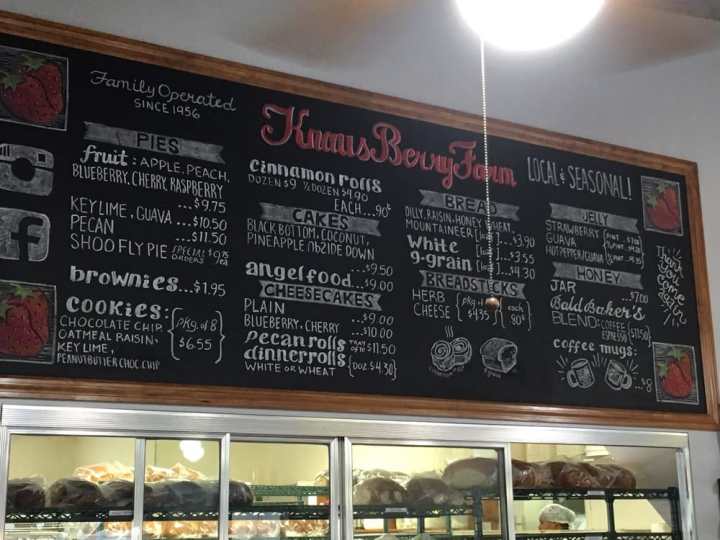 Family Operated
SINCE 1956
Knaus Berry Farm
LOCAL & SEASONAL!
PIES
fruit: APPLE, PEACH,
BLUEBERRY, CHERRY, RASPBERRY
...$9.75
KEY LIME, GUAVA ...$10.50
PECAN ...$11.50
SHOO FLY PIE SPECIAL ORDERS
brownies...$1.95
cookies:
CHOCOLATE CHIP,
OATMEAL RAISIN,
KEY LIME,
PEANUTBUTTER CHOC. CHIP
pkg. of 8
$6.55
cinnamon rolls
DOZEN $9 ½ DOZEN $4.90
EACH...90¢
CAKES
BLACK BOTTOM, COCONUT,
PINEAPPLE UPSIDE DOWN
...$9.50
angel food...$9.00
CHEESECAKES
PLAIN ...$9.00
BLUEBERRY, CHERRY ...$10.00
pecan rolls TRAY OF 12 $11.50
dinner rolls
WHITE OR WHEAT
DOZ. $4.30
BREAD
DILLY, RAISIN, HONEY WHEAT,
MOUNTAINEER ...$3.90
White ...$3.55
9-grain ...$4.30
BREADSTICKS
HERB
CHEESE
pkg. of
$4.35
each
80¢
JELLY
STRAWBERRY
GUAVA
HOT PEPPER/GUAVA
HONEY
JAR ...$7.00
Bald Baker's
BLEND: COFFEE
ESPRESSO
$11.50
coffee mugs:
...$8
Thank you